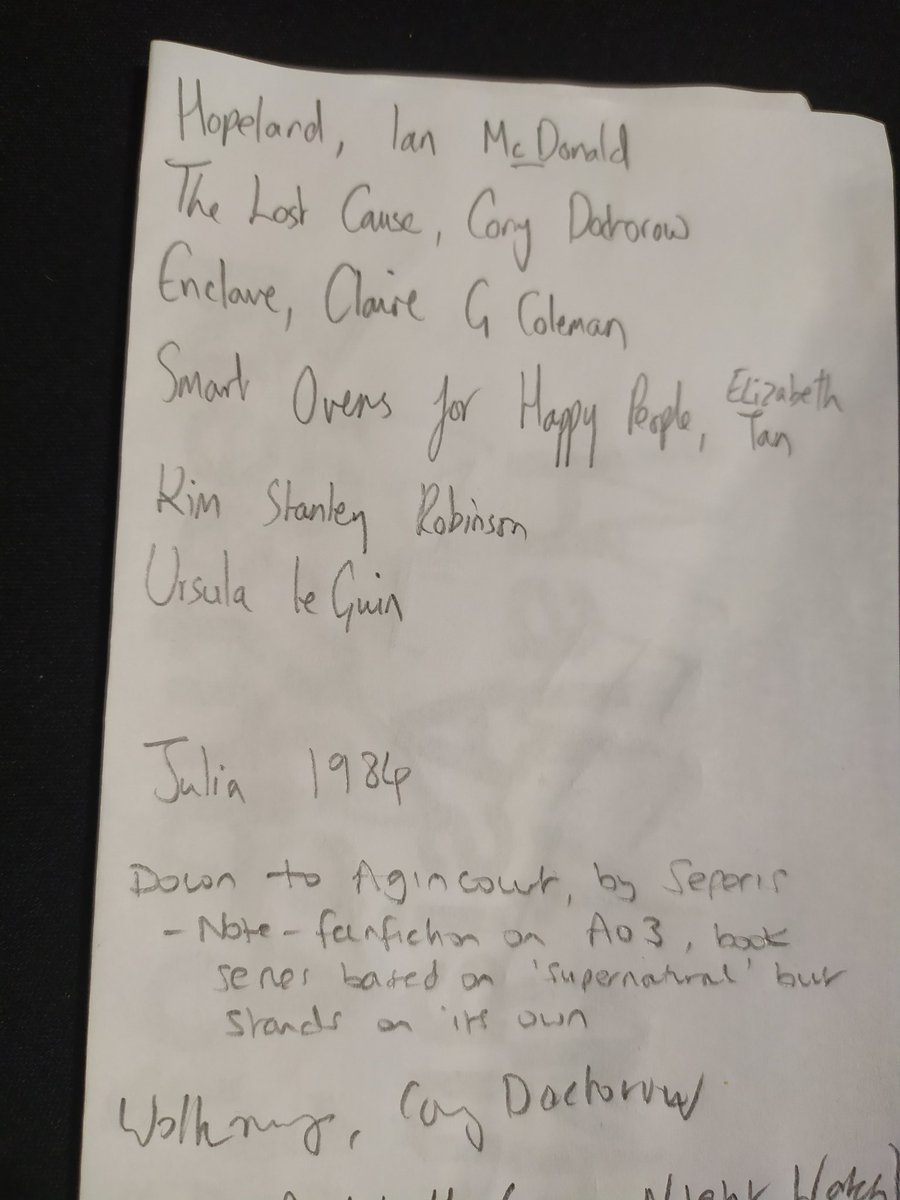 Hopeland, Ian McDonald
The Lost Cause, Cory Dotrorow
Enclave, Claire G Coleman
Smart Ovens for Happy People, Elizabeth Tan
Kim Stanley Robinson
Ursula le Guin
Julia 1984
Down to Agincourt, by Seperis
- Note - fanfiction on AO3, book
series based on 'Supernatural' but
stands on its own
Cory Doctorow
Night Watch